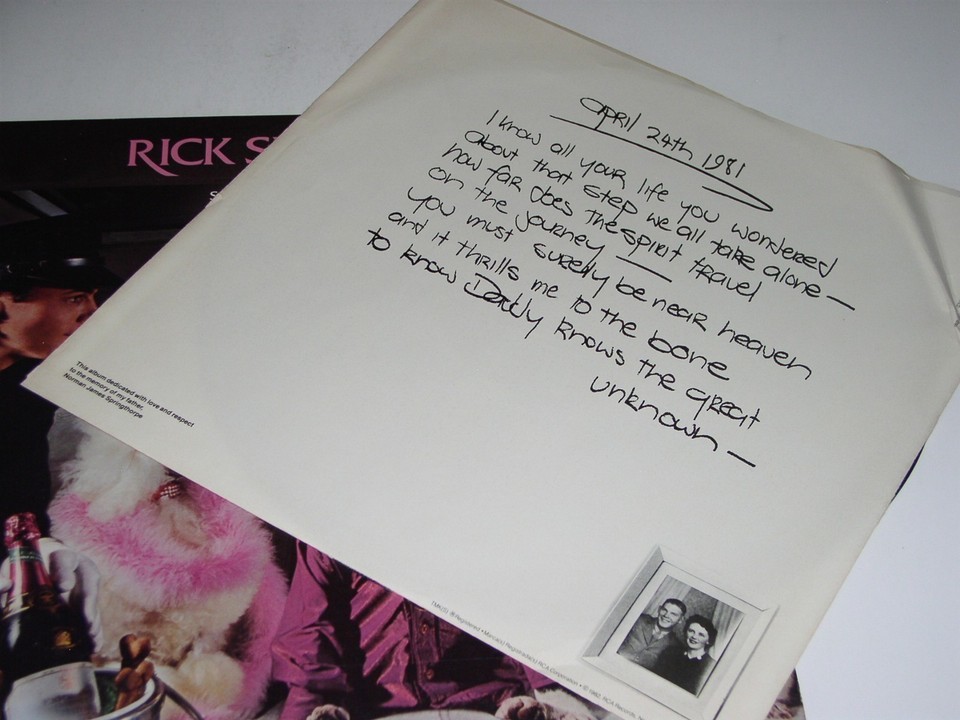 RICK S
APRIL 24th 1981
I know all your life you wondered
about that step we all take alone —
how far does the spirit travel
on the journey —
you must surely be near heaven
and it thrills me to the bone
to know Daddy knows the great
unknown —
This album dedicated with love and respect
to the memory of my father,
Norman James Springthorpe
TMK(S) ® Registered • Marca(s) Registrada(s) RCA Corporation • © 1982, RCA Records, N